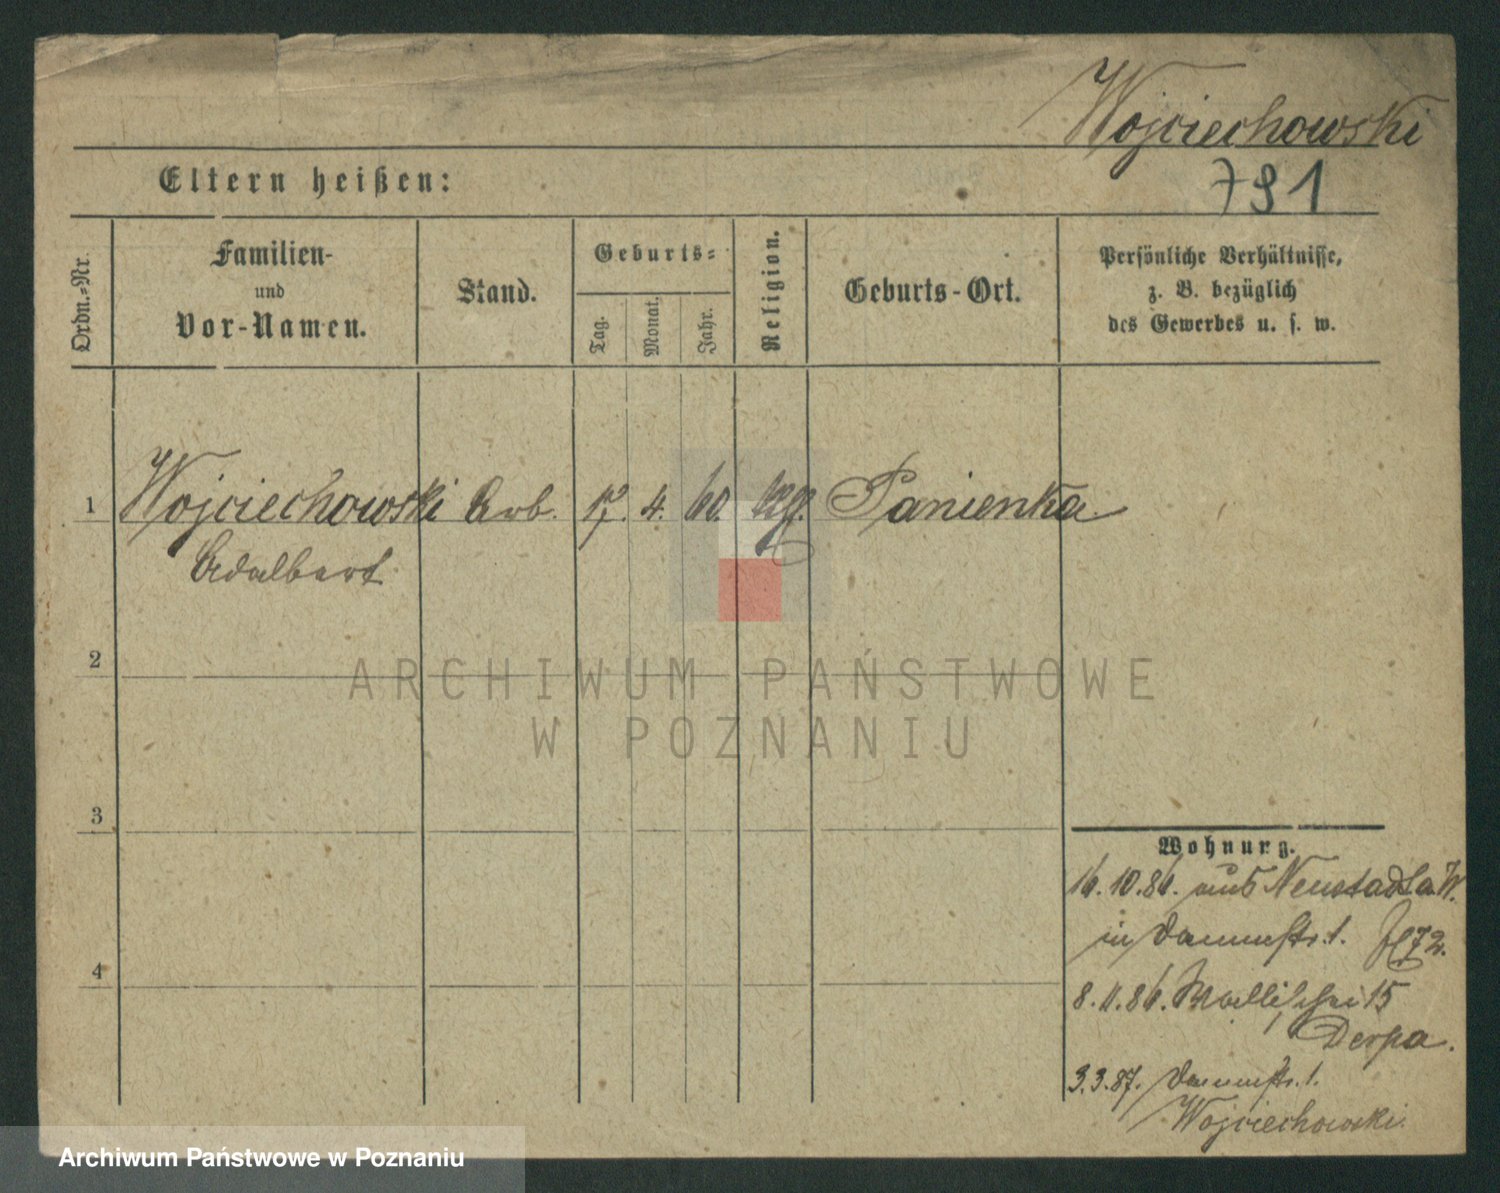 Wojciechowski
791
Eltern heißen:
Ordn.-Nr.
Familien-
und
Vor-Namen.
Stand.
Geburts-
Tag.
Monat.
Jahr.
Religion.
Geburts-Ort.
Persönliche Verhältnisse,
z. B. bezüglich
des Gewerbes u. s. w.
1 Wojciechowski Arb. 17. 4. 60. Panienka
Adalbert
2
ARCHIWUM PAŃSTWOWE
W POZNANIU
3
Wohnung.
16.10.86. aus Neustadt a W.
in Dammstr. 1. 72.
8.11.86. Wallischei 15
Derpa.
3.3.87. Dammstr. 1.
Wojciechowski
4
Archiwum Państwowe w Poznaniu